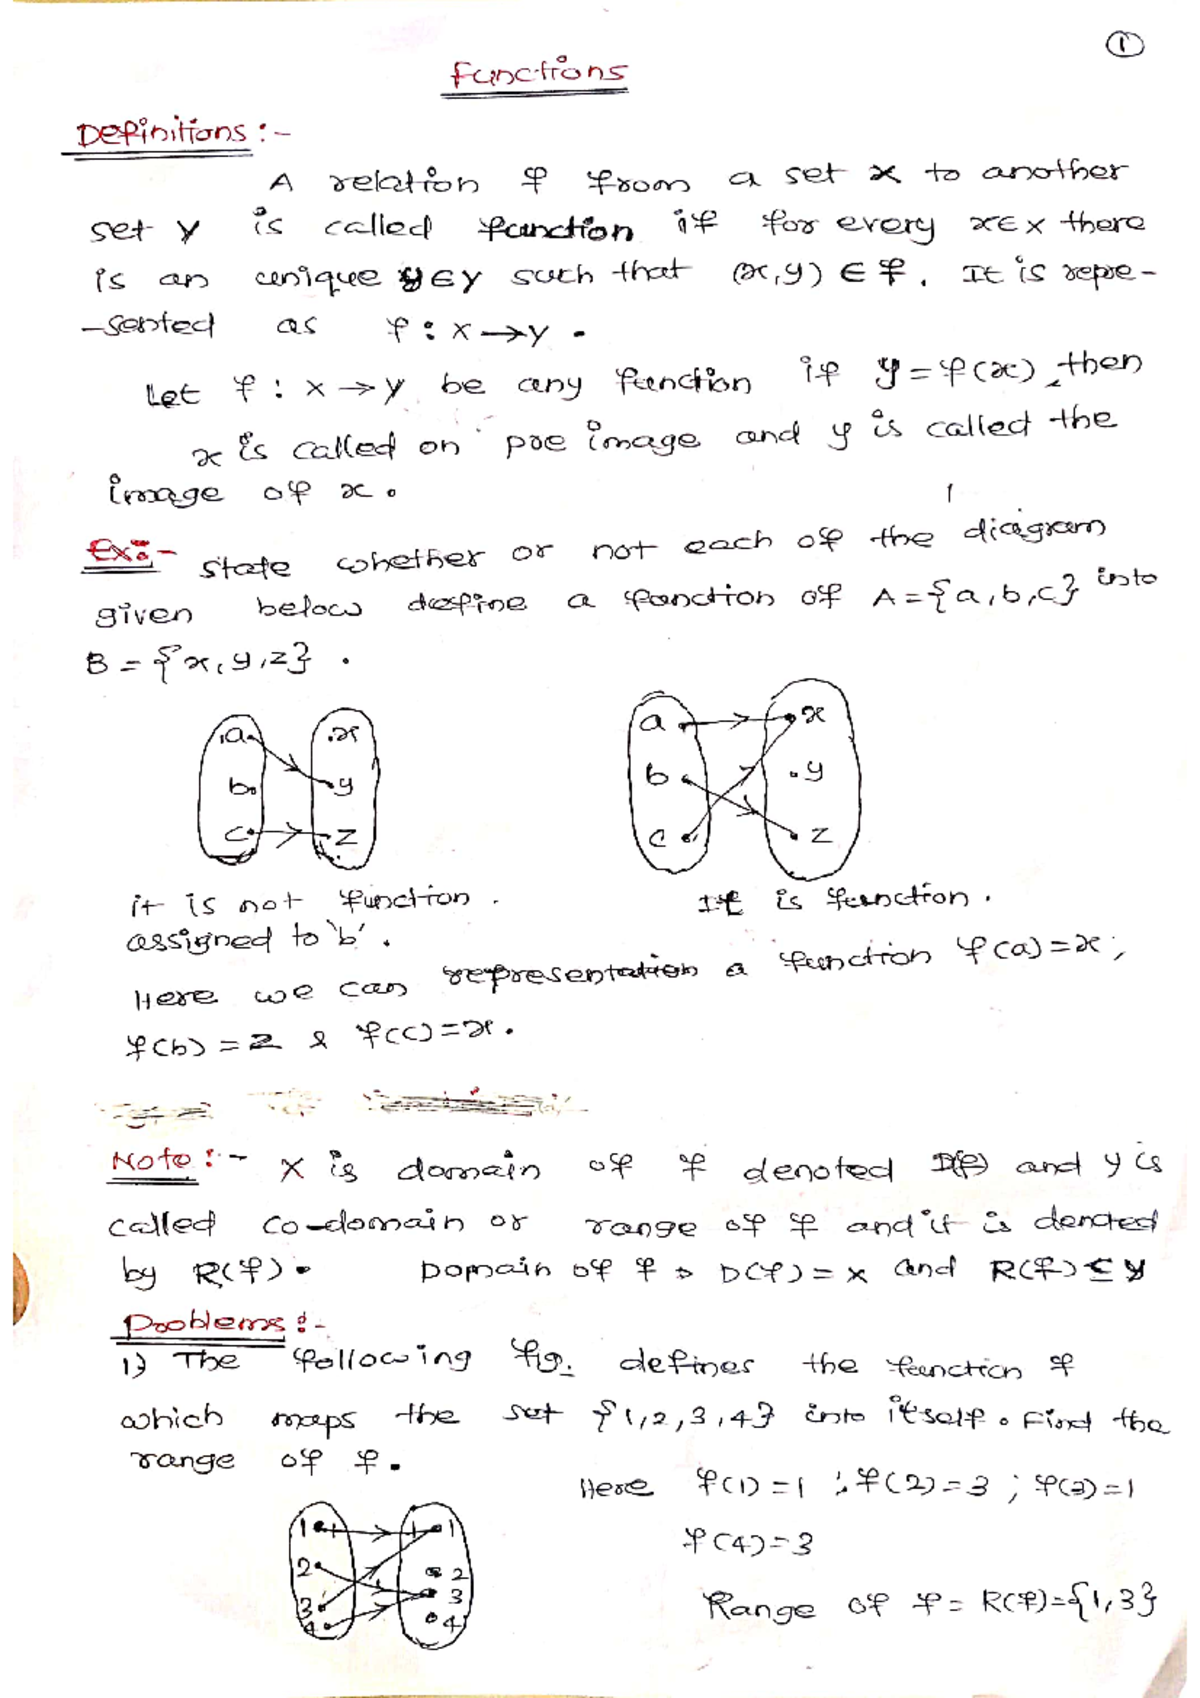 1
Functions
Definitions :-
A relation f from a set x to another
set y is called function if for every x∈x there
is an unique y∈y such that (x,y) ∈ f. It is repre-
-sented as f : x→y.
Let f : x→y be any function if y=f(x), then
x is called on pre image and y is called the
image of x.
Ex:- state whether or not each of the diagram
given below define a function of A={a,b,c} into
B={x,y,z}.
a x a x
b y b y
c z c z
it is not function. It is function.
assigned to 'b'.
Here we can representation a function f(a)=x;
f(b)=z & f(c)=x.
Note :- X is domain of f denoted D(f) and y is
called co-domain or range of f and it is denoted
by R(f). Domain of f → D(f)=x and R(f)⊆y
Problems :-
1) The following fig. defines the function f
which maps the set {1,2,3,4} into itself. Find the
range of f.
Here f(1)=1 ; f(2)=3 ; f(3)=1
f(4)=3
Range of f = R(f)={1,3}
1 1
2 2
3 3
4 4